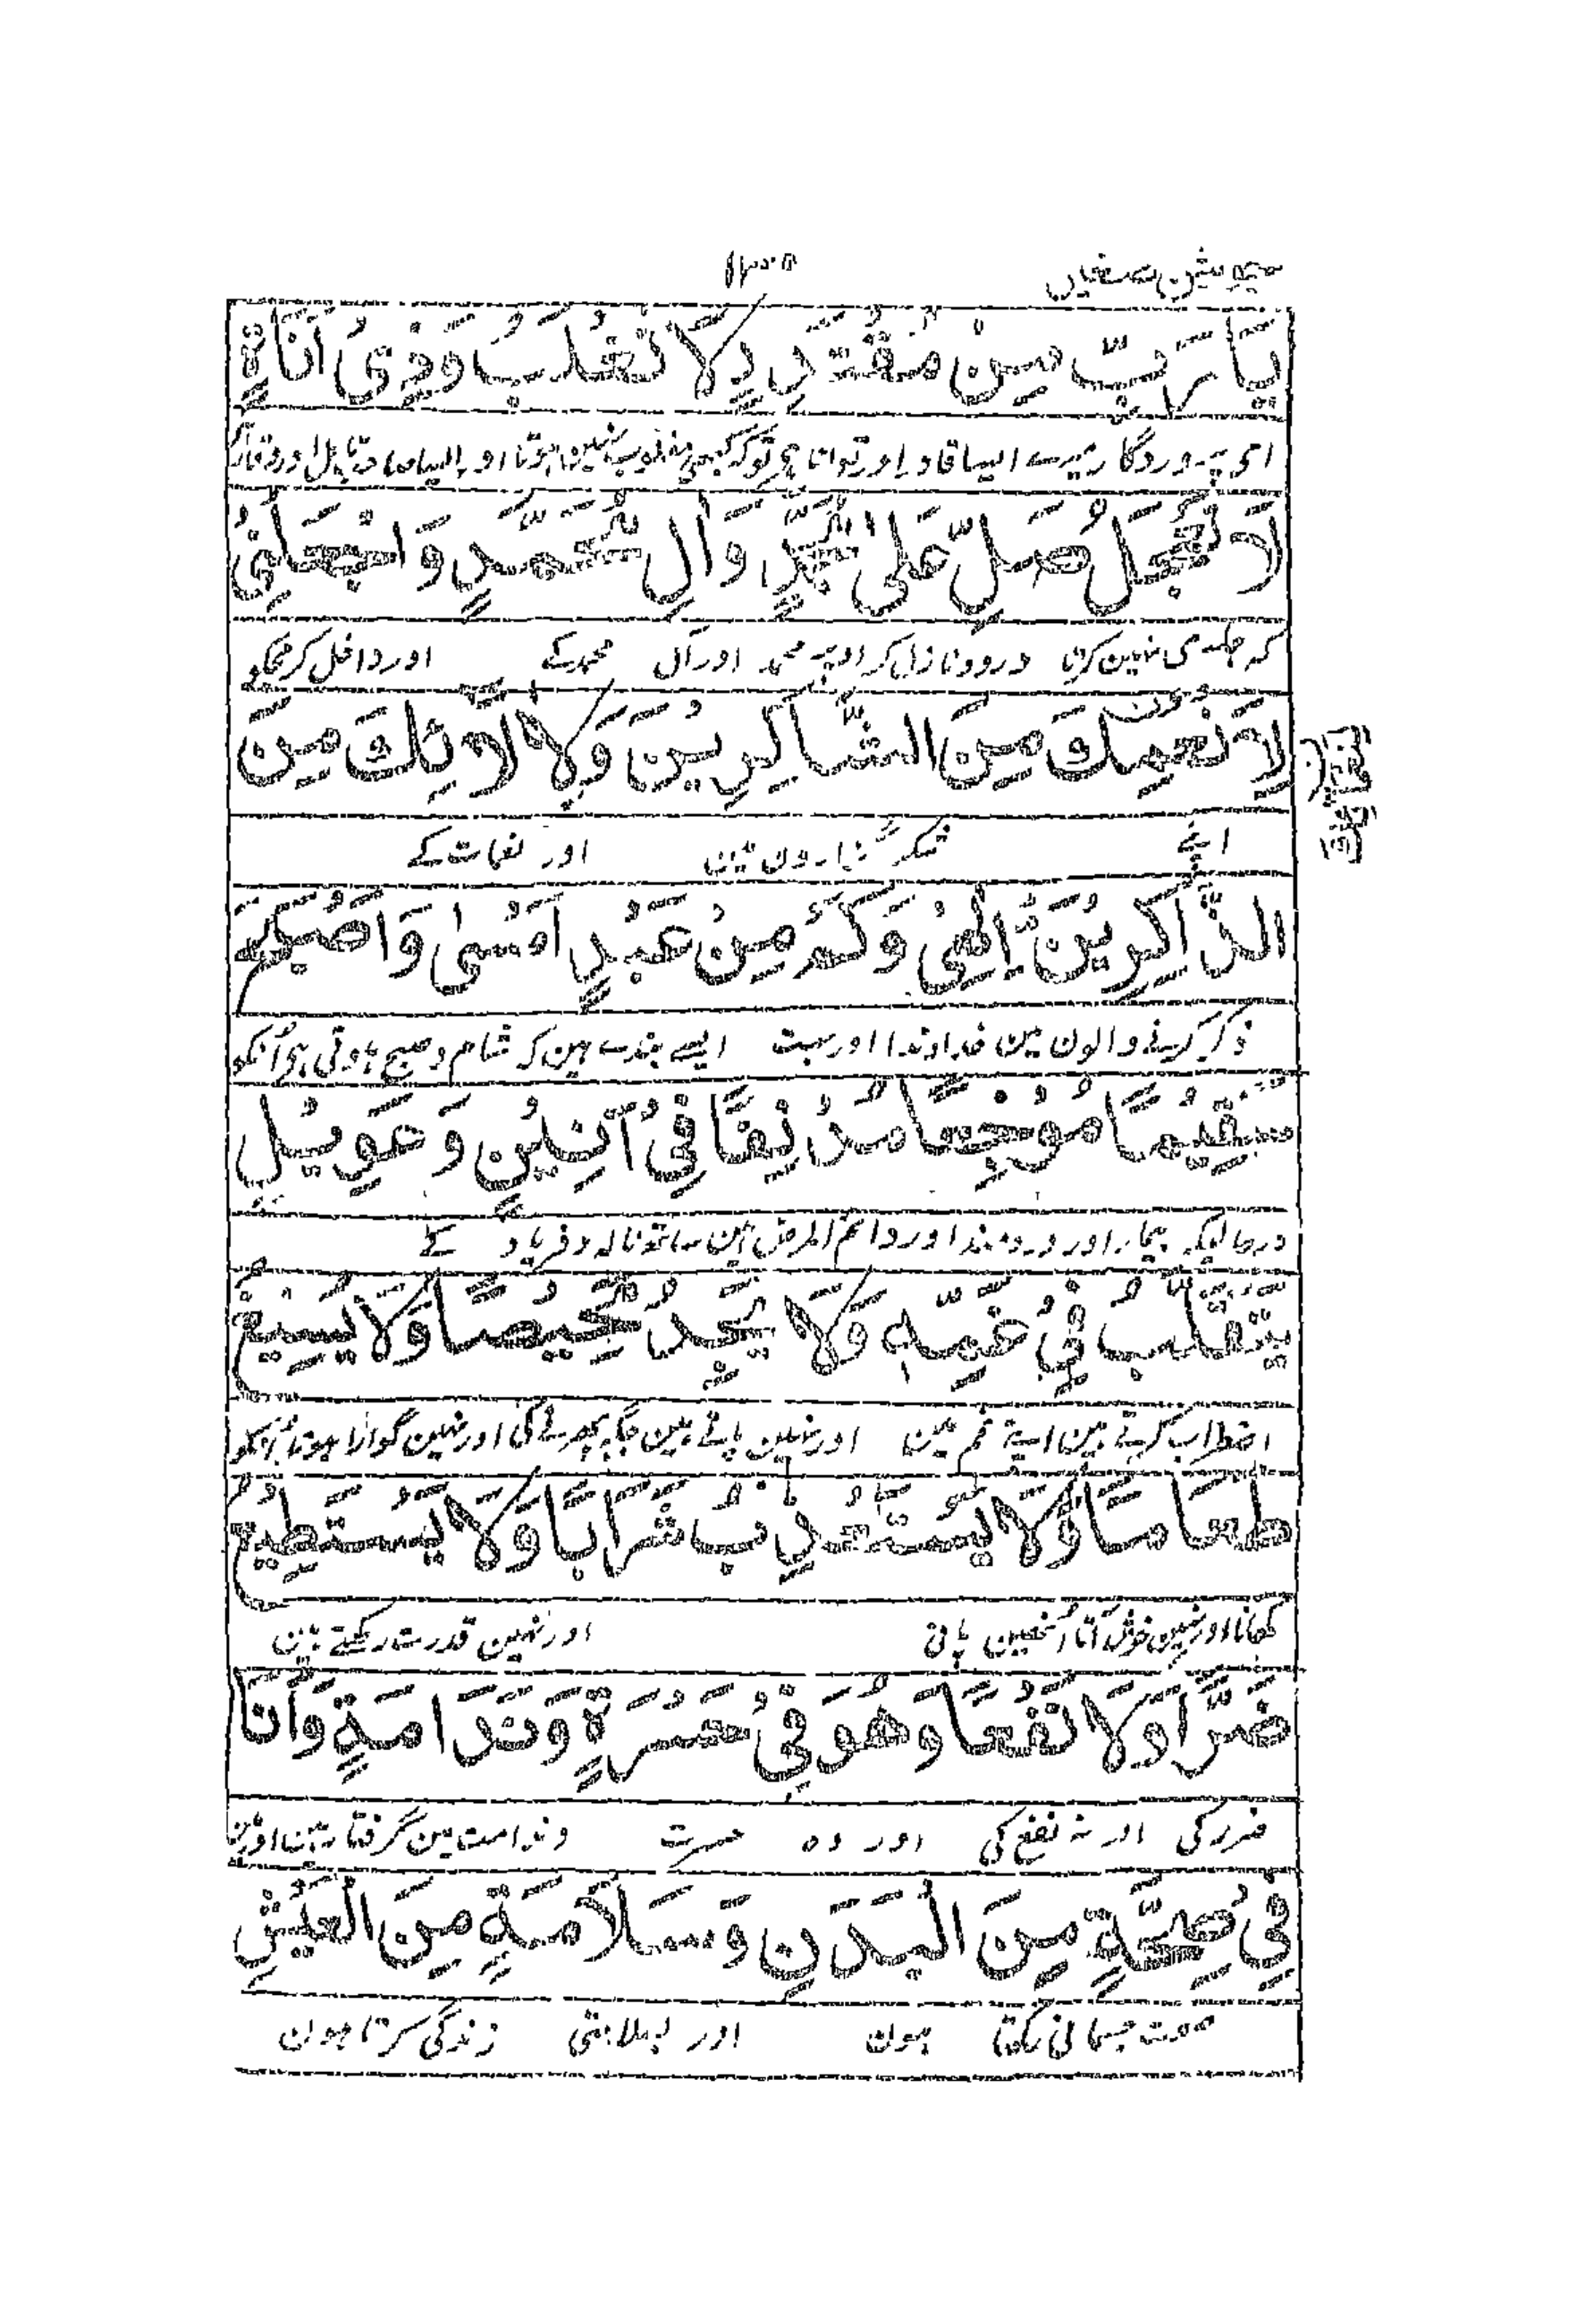 يَا رَبِّ مِنْ مُقْتَدِرٍ لَا تُغْلَبُ وَذِي أَنَاةٍ
ای پروردگار میرے ایسا قادر اور توانا ہی تو کہ کبھی مغلوب نہین ہوتا اور ایسا
لَا تَعْجَلُ صَلِّ عَلَى مُحَمَّدٍ وَآلِ مُحَمَّدٍ وَاجْعَلْنِي
کہ جلدی نہین کرتا درود نازل کر اوپر محمد اور آل محمد کے اور داخل کر مجکو
لِأَنْعُمِكَ مِنَ الشَّاكِرِينَ وَلِآلَائِكَ مِنَ
اپنے شکر گزارون مین اور نعمات کے
الذَّاكِرِينَ إِلٰهِي وَكَمْ مِنْ عَبْدٍ أَمْسٰى وَأَصْبَحَ
ذکر کرنے والون مین خداوندا اور بہت ایسے بندے ہین کہ شام و صبح ہوتی ہی اُنکو
سَقِيمًا مُوْجَعًا مُدْنِفًا فِي أَنِينٍ وَعَوِيلٍ
درحالیکہ بیمار اور دردمند اور دائم المرض ہین ساتھ نالہ و فریاد کے
يَتَقَلَّبُ فِي غَمِّهِ وَلَا يَجِدُ مَحِيصًا وَلَا يُسِيغُ
اضطراب کرتے ہین اپنے غم مین اور نہین پاتے ہین جگہ پھرنے کی اور نہین گوارا ہوتا اُنکو
طَعَامًا وَلَا يَسْتَعْذِبُ شَرَابًا وَلَا يَسْتَطِيعُ
کھانا اور نہین خوش آتا اُنھین پانی اور نہین قدرت رکھتے ہین
ضَرًّا وَلَا نَفْعًا وَهُوَ فِي حَسْرَةٍ وَنَدَامَةٍ وَأَنَا
ضرر کی اور نہ نفع کی اور وہ حسرت و ندامت مین گرفتار ہین اور مین
فِي صِحَّةٍ مِنَ الْبَدَنِ وَسَلَامَةٍ مِنَ الْعَيْشِ
صحت جسمانی رکھتا ہون اور بسلامتی زندگی کرتا ہون